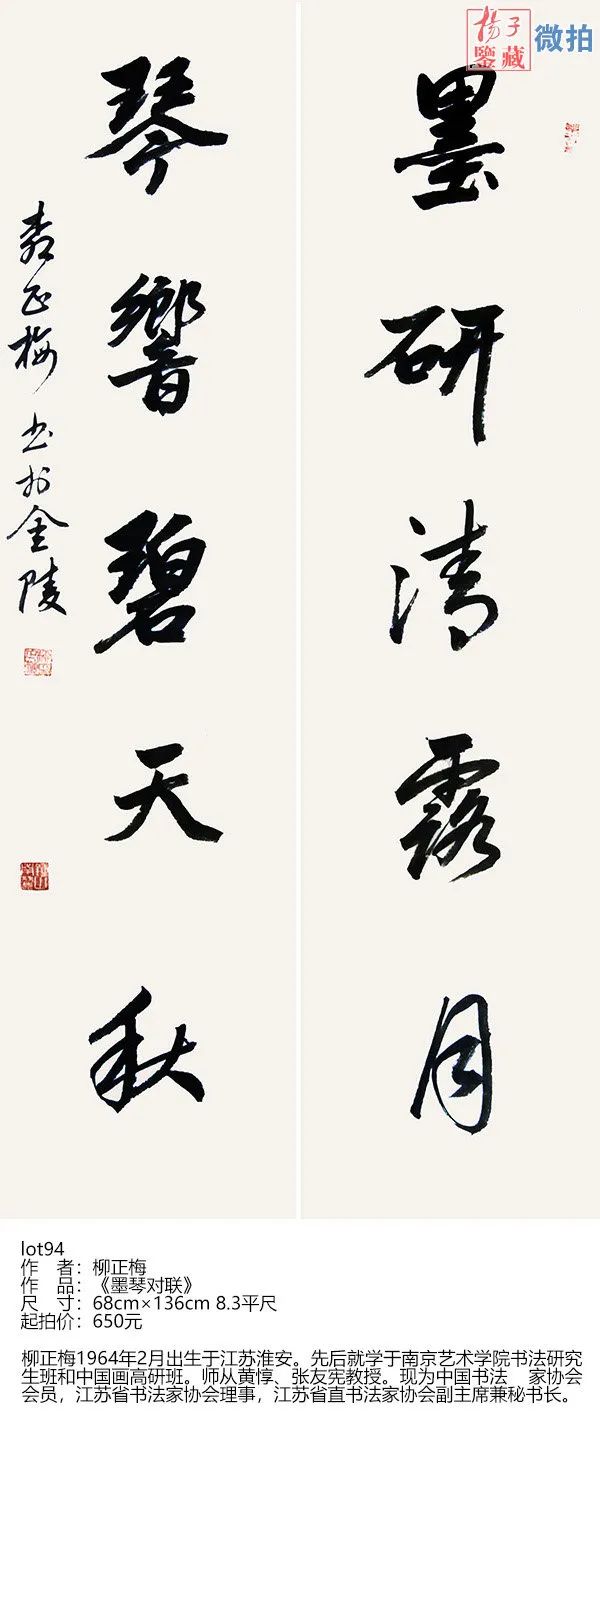 楊子
鑒藏
微拍
墨研清露月
琴響碧天秋
正梅 书於金陵
lot94
作　者：柳正梅
作　品：《墨琴对联》
尺　寸：68cm×136cm 8.3平尺
起拍价：650元
柳正梅1964年2月出生于江苏淮安。先后就学于南京艺术学院书法研究
生班和中国画高研班。师从黄惇、张友宪教授。现为中国书法　家协会
会员，江苏省书法家协会理事，江苏省直书法家协会副主席兼秘书长。